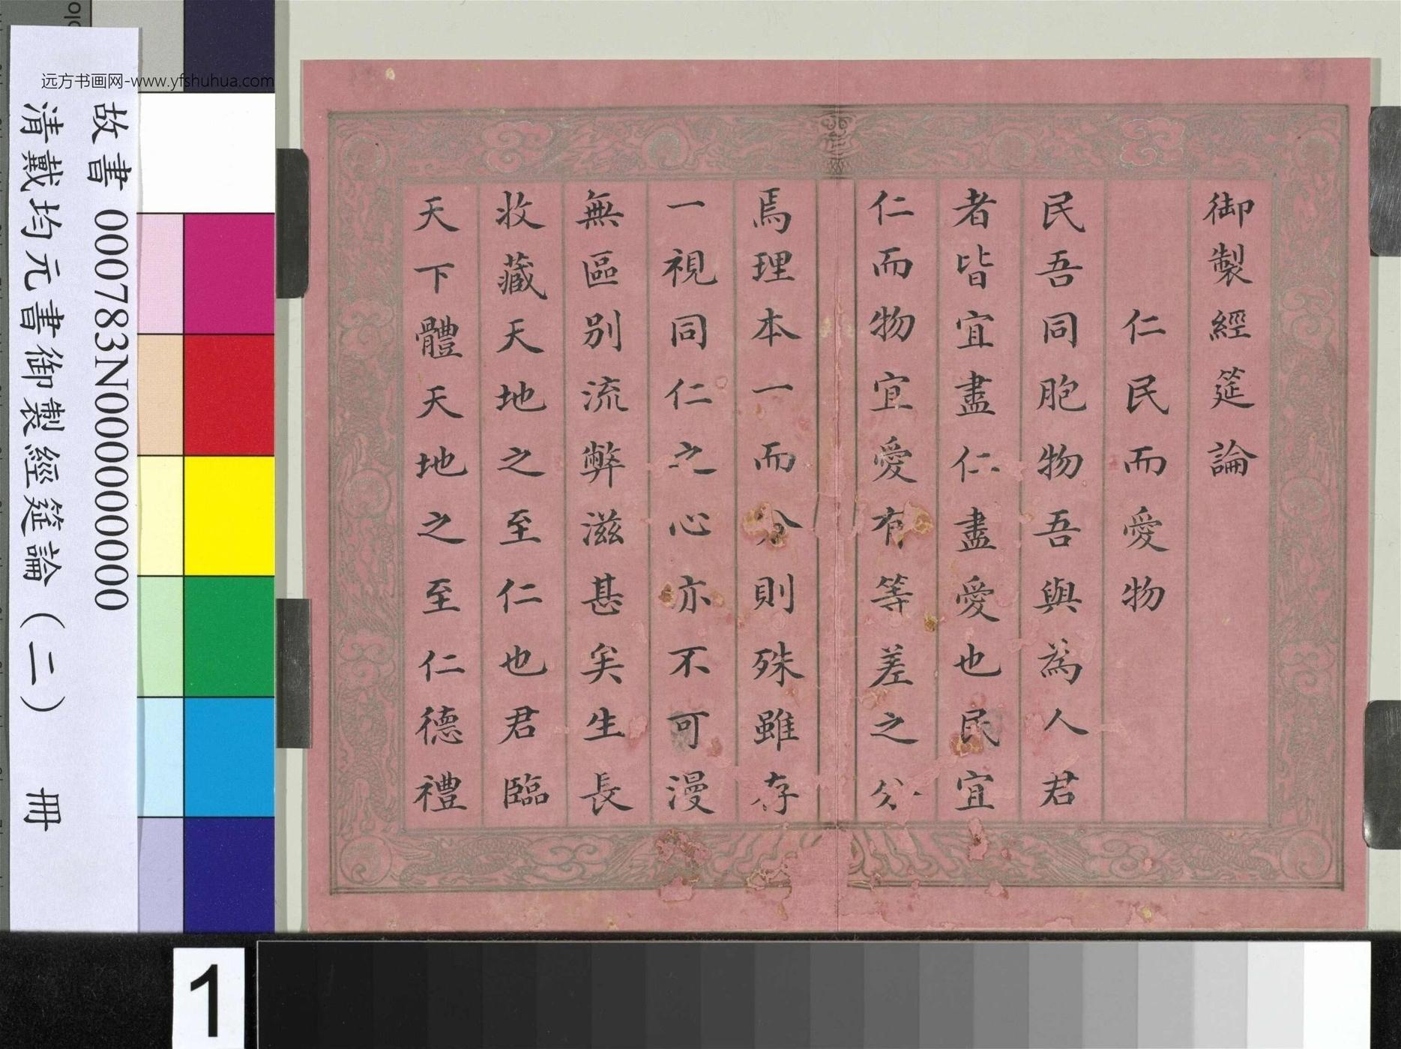 御製經筵論
仁民而愛物
民吾同胞物吾與為人君
者皆宜盡仁盡愛也民宜
仁而物宜愛有等差之分
焉理本一而分則殊雖存
一視同仁之心亦不可漫
無區別流弊滋甚矣生長
收藏天地之至仁也君臨
天下體天地之至仁德禮
故書 000783N000000000
清戴均元書御製經筵論（二） 冊
远方书画网-www.yfshuhua.com
1